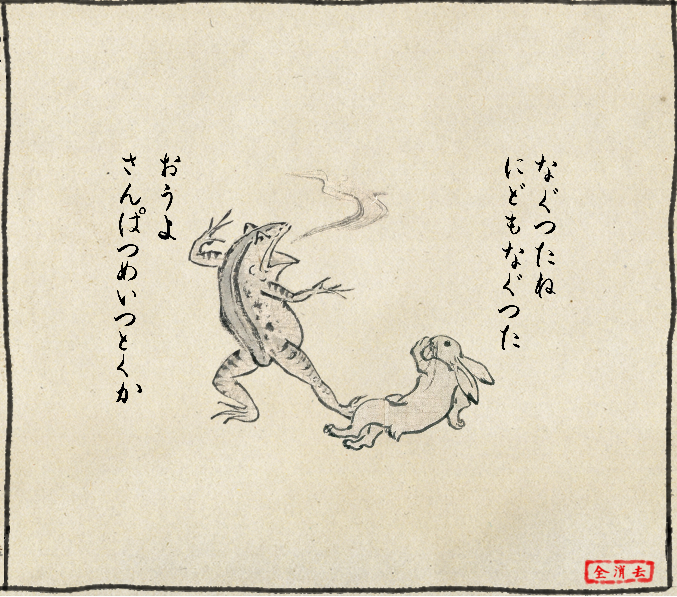 なぐつたね
にどもなぐつた
おうよ
さんぱつめいつとくか
全消去